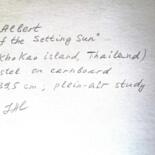 Albert
f the Setting Sun"
Kho Kao island, Thailand)
stel on cardboard
39,5 cm; plein-air study